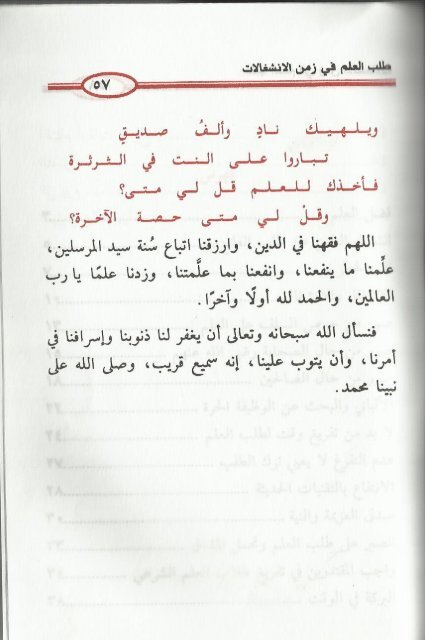 طلب العلم في زمن الانشغالات
٥٧
ويلهيك نادٍ وألفُ صديقٍ
تباروا على النت في الثرثرة
فأخذك للعلم قل لي متى؟
وقلْ لي متى حصة الآخرة؟
اللهم فقهنا في الدين، وارزقنا اتباع سُنة سيد المرسلين،
علِّمنا ما ينفعنا، وانفعنا بما علَّمتنا، وزدنا علمًا يا رب
العالمين، والحمد لله أولًا وآخرًا.
فنسأل الله سبحانه وتعالى أن يغفر لنا ذنوبنا وإسرافنا في
أمرنا، وأن يتوب علينا، إنه سميع قريب، وصلى الله على
نبينا محمد.